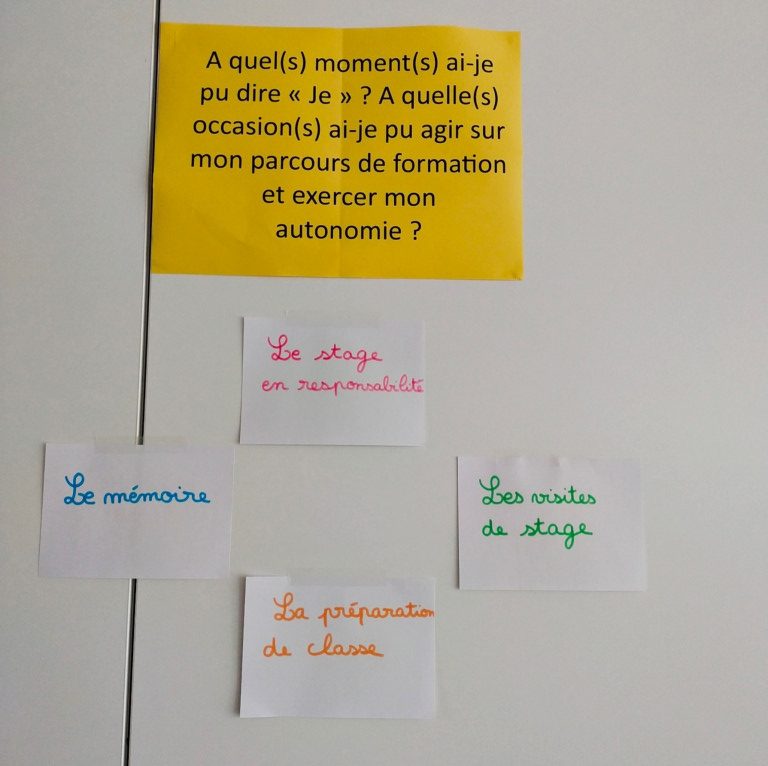 A quel(s) moment(s) ai-je
pu dire « Je » ? A quelle(s)
occasion(s) ai-je pu agir sur
mon parcours de formation
et exercer mon
autonomie ?
Le stage
en responsabilité
Le mémoire
Les visites
de stage
La préparation
de classe